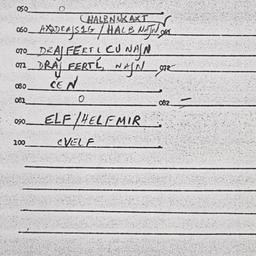 050 O
HALBNUKAXT
060 AXADRAJSIG/HALB NAJN 061
070 DRAJFERTL CU NAJN
071 DRAJ FERTL NAJN 072
080 CEN
081 O 082 —
090 ELF/HELFMIR
100 CVELF